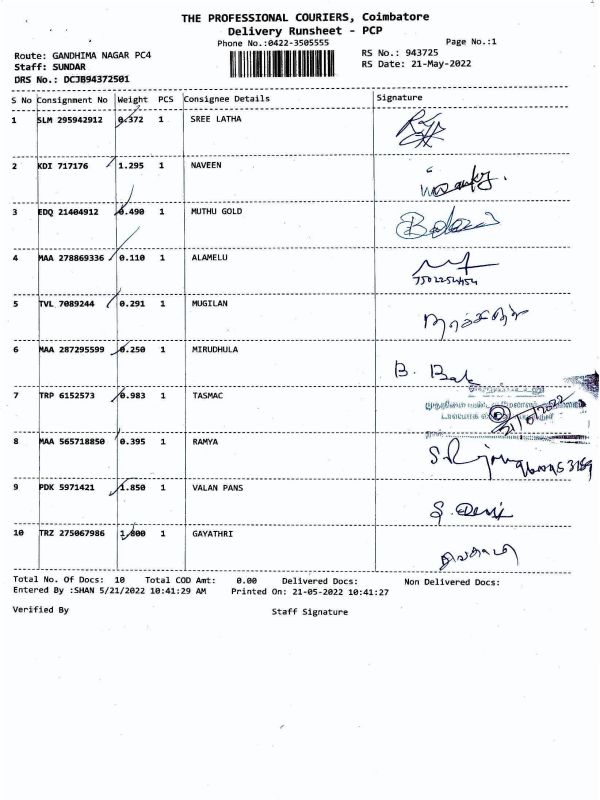 THE PROFESSIONAL COURIERS, Coimbatore
Delivery Runsheet - PCP
Phone No.:0422-3505555 Page No.:1
Route: GANDHIMA NAGAR PC4 RS No.: 943725
Staff: SUNDAR RS Date: 21-May-2022
DRS No.: DCJB94372501
S No Consignment No Weight PCS Consignee Details Signature
1 SLM 295942912 0.372 1 SREE LATHA
2 KDI 717176 1.295 1 NAVEEN
3 EDQ 21404912 0.490 1 MUTHU GOLD
4 MAA 278869336 0.110 1 ALAMELU
5 TVL 7089244 0.291 1 MUGILAN
6 MAA 287295599 0.250 1 MIRUDHULA
7 TRP 6152573 0.983 1 TASMAC
8 MAA 565718850 0.395 1 RAMYA
9 PDK 5971421 1.850 1 VALAN PANS
10 TRZ 275067986 1.800 1 GAYATHRI
Total No. Of Docs: 10 Total COD Amt: 0.00 Delivered Docs: Non Delivered Docs:
Entered By :SHAN 5/21/2022 10:41:29 AM Printed On: 21-05-2022 10:41:27
Verified By Staff Signature